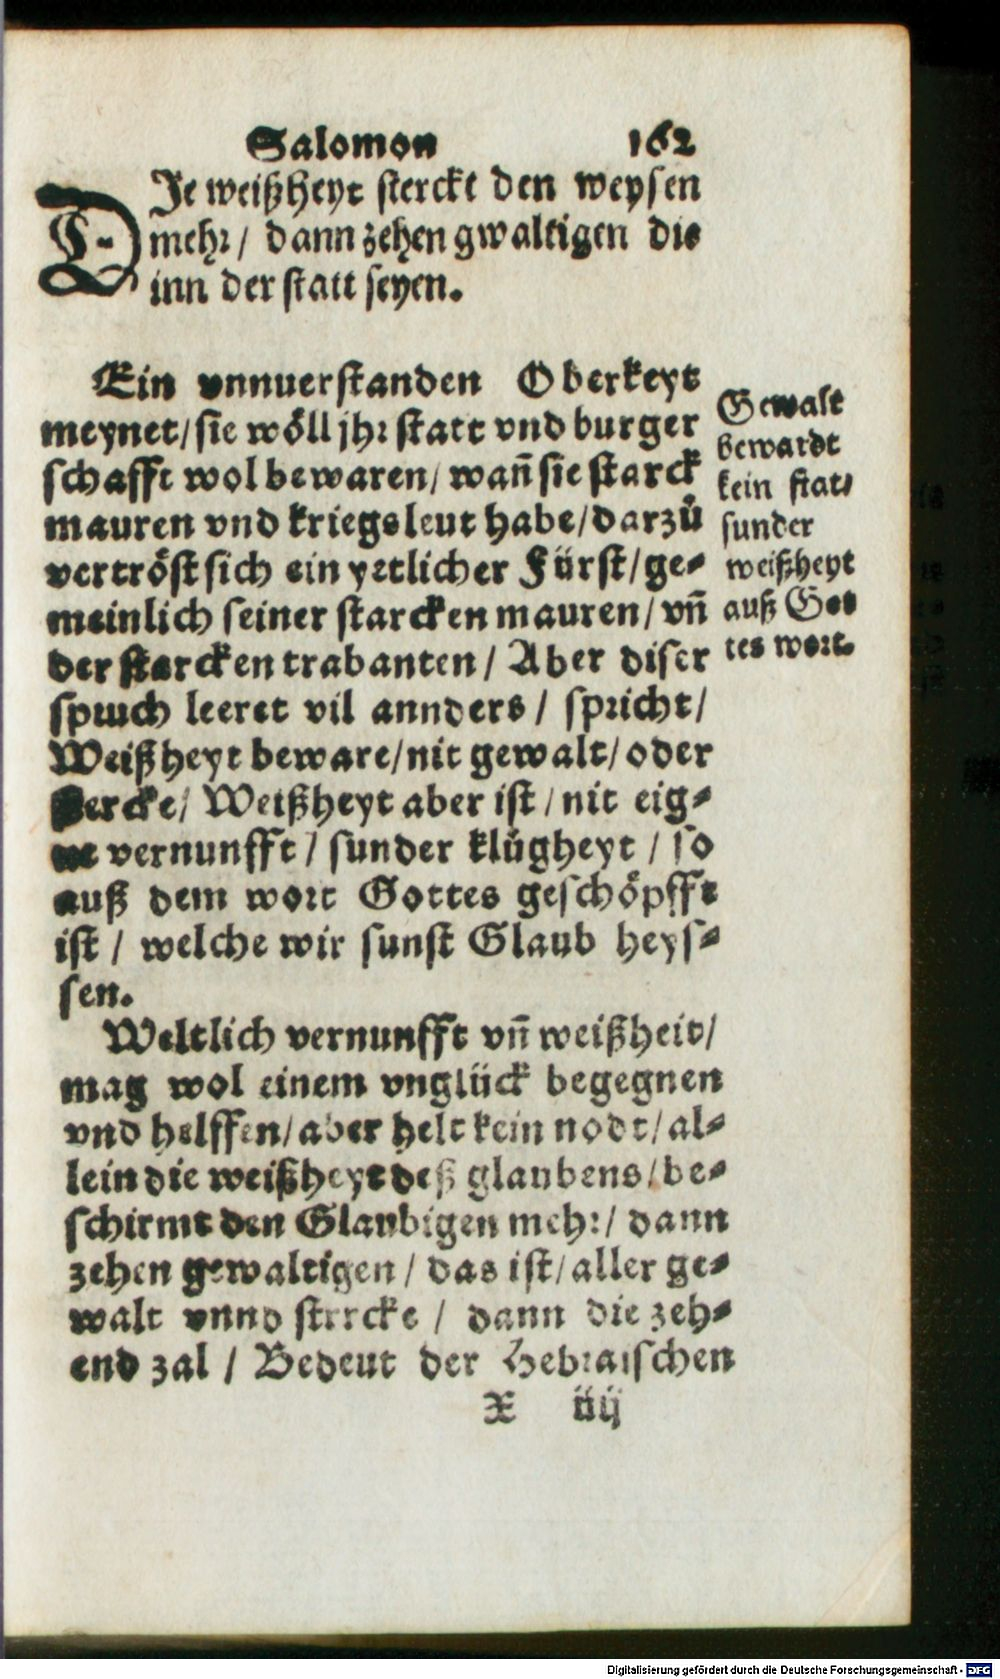 Salomon 162
DIe weißheyt sterckt den weysen
mehr/ dann zehen gwaltigen die
inn der statt seyen.
Ein vnnuerstanden Oberkeyt
meynet/sie wöll jhr statt vnd burger
schafft wol bewaren/ wañ sie starck
mauren vnd kriegsleut habe/darzů
vertröst sich ein yetlicher Fürst/ge-
meinlich seiner starcken mauren/ vñ
der starcken trabanten/ Aber diser
spruch leeret vil annders/ spricht/
Weißheyt beware/nit gewalt/oder
stercke/ Weißheyt aber ist/nit eig-
ne vernunfft/ sunder klůgheyt/ so
auß dem wort Gottes geschöpfft
ist/ welche wir sunst Glaub heys-
sen.
Gewalt
bewardt
kein stat/
sunder
weißheyt
auß Got
tes wort.
Weltlich vernunfft vñ weißheit/
mag wol einem vnglück begegnen
vnd helffen/aber helt kein nodt/al-
lein die weißheyt deß glaubens/be-
schirmt den Glaubigen mehr/ dann
zehen gewaltigen/ das ist/aller ge-
walt vnnd stercke/ dann die zeh-
end zal/ Bedeut der Hebraischen
X iiij
Digitalisierung gefördert durch die Deutsche Forschungsgemeinschaft - DFG